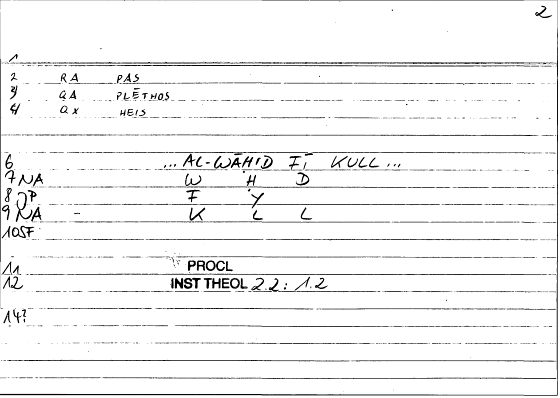 2
1
2 RA PAS
3/ QA PLĒTHOS
4/ QX HEIS
6 ... AL-WĀḤID FĪ KULL ...
7 NA W Ḥ D
8 JP F Y
9 NA - K L L
10 SF
11 PROCL
12 INST THEOL 22: 1.2
14?